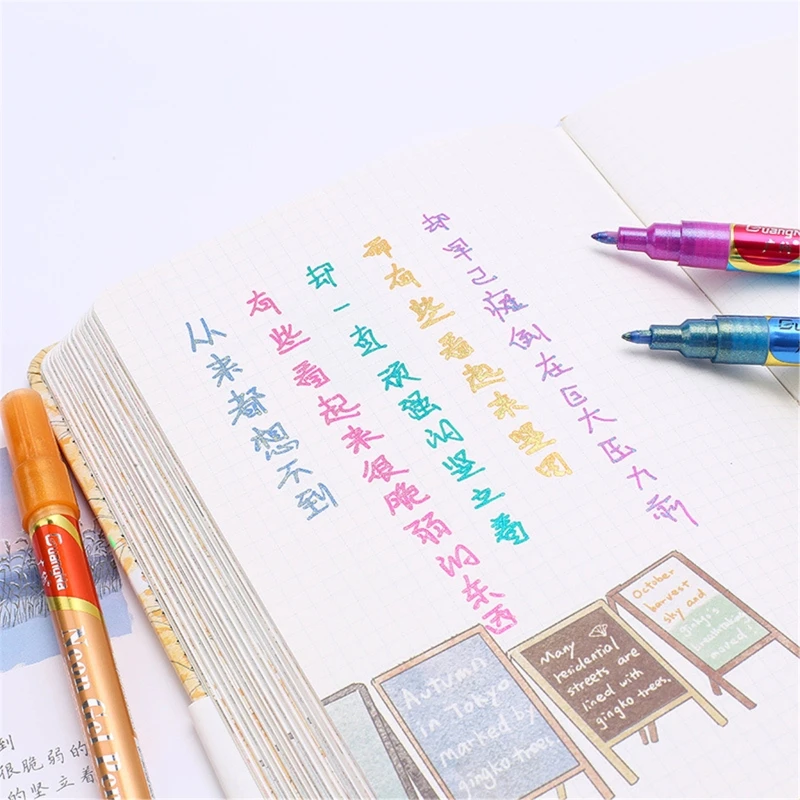 从来都想不到
有些看起来很脆弱的东西
却一直顽强的坚立着
而有些看起来坚固
却早已瘫倒在巨大压力前
Autumn
in Tokyo
marked by
gingko trees.
Many
residential
streets are
lined with
gingko trees.
October
harvest
sky and
GuangN
GUANGNA
Neon Gel
到
很脆弱的
的坚立着